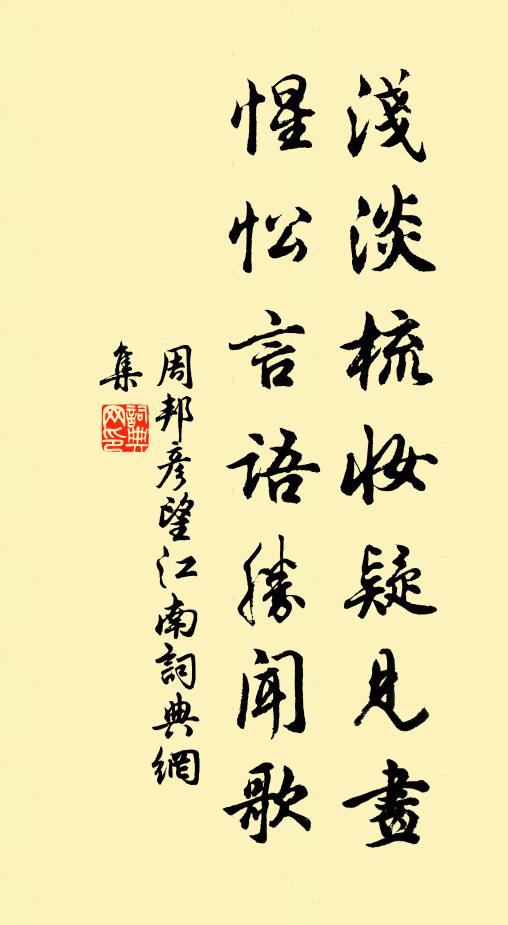 淺淡梳妝疑見畫
惺忪言語勝聞歌
周邦彥望江南詞典網
集
詞典
网印